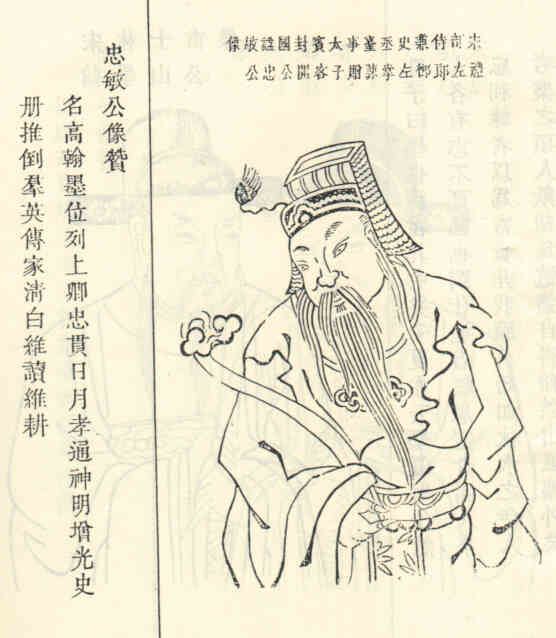 宋禮部左侍郎兼御史左丞掌臺諫事贈太子賓客封開國公諡忠敏公像
忠敏公像贊
名高翰墨位列上卿忠貫日月孝通神明增光史
册推倒羣英傳家清白維讀維耕